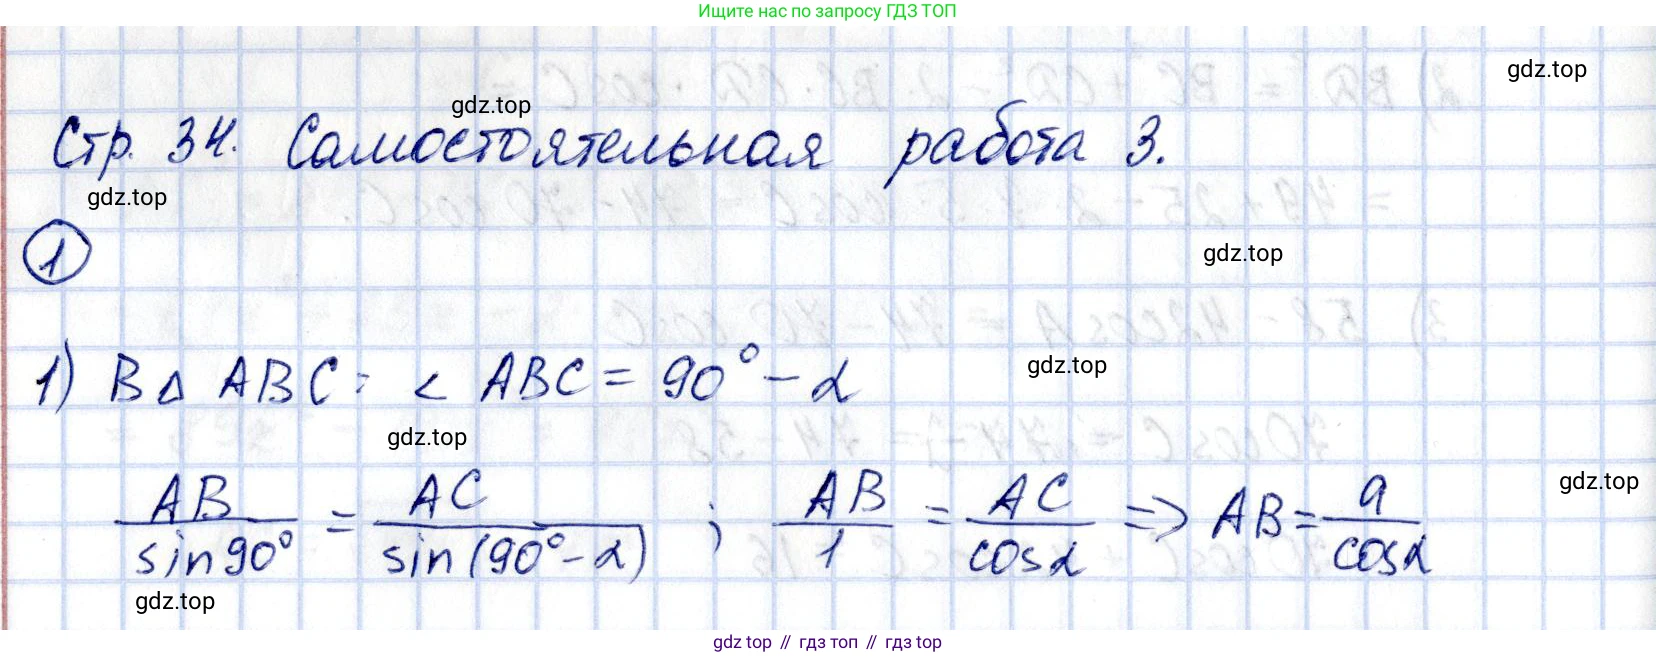 Ищите нас по запросу ГДЗ ТОП
gdz.top
gdz.top
Стр. 34. Самостоятельная работа 3.
gdz.top
1
gdz.top
1) В Δ ABC: < ABC = 90° - α
gdz.top
gdz.top
AB/sin90° = AC/sin(90°-α) ; AB/1 = AC/cosα => AB = a/cosα
gdz.top
gdz.top
gdz top // гдз топ // gdz top